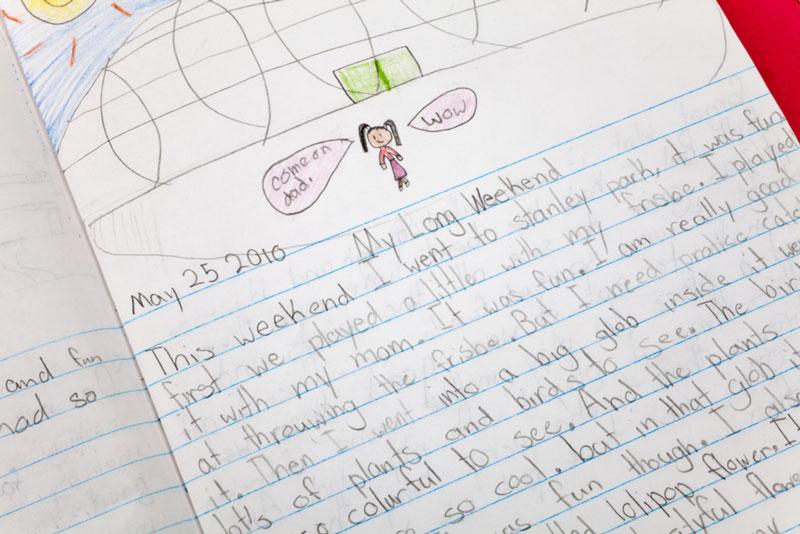 wow
come on
dad.
My Long Weekend
May 25 2010
This weekend I went to stanley park, it was fun
first we played a little with my frisbe. I played
it with my mom. It was fun. I am really good
at throuwing the frisbe. But I need pratice catc
it. Then I went into a big glob inside it we
lot's of plants and birds to see. The bir
so colurful to see. And the plants
so cool. but in that glob it
as fun though. I also
lolipop flower. I
flowe
my
and fun
had so